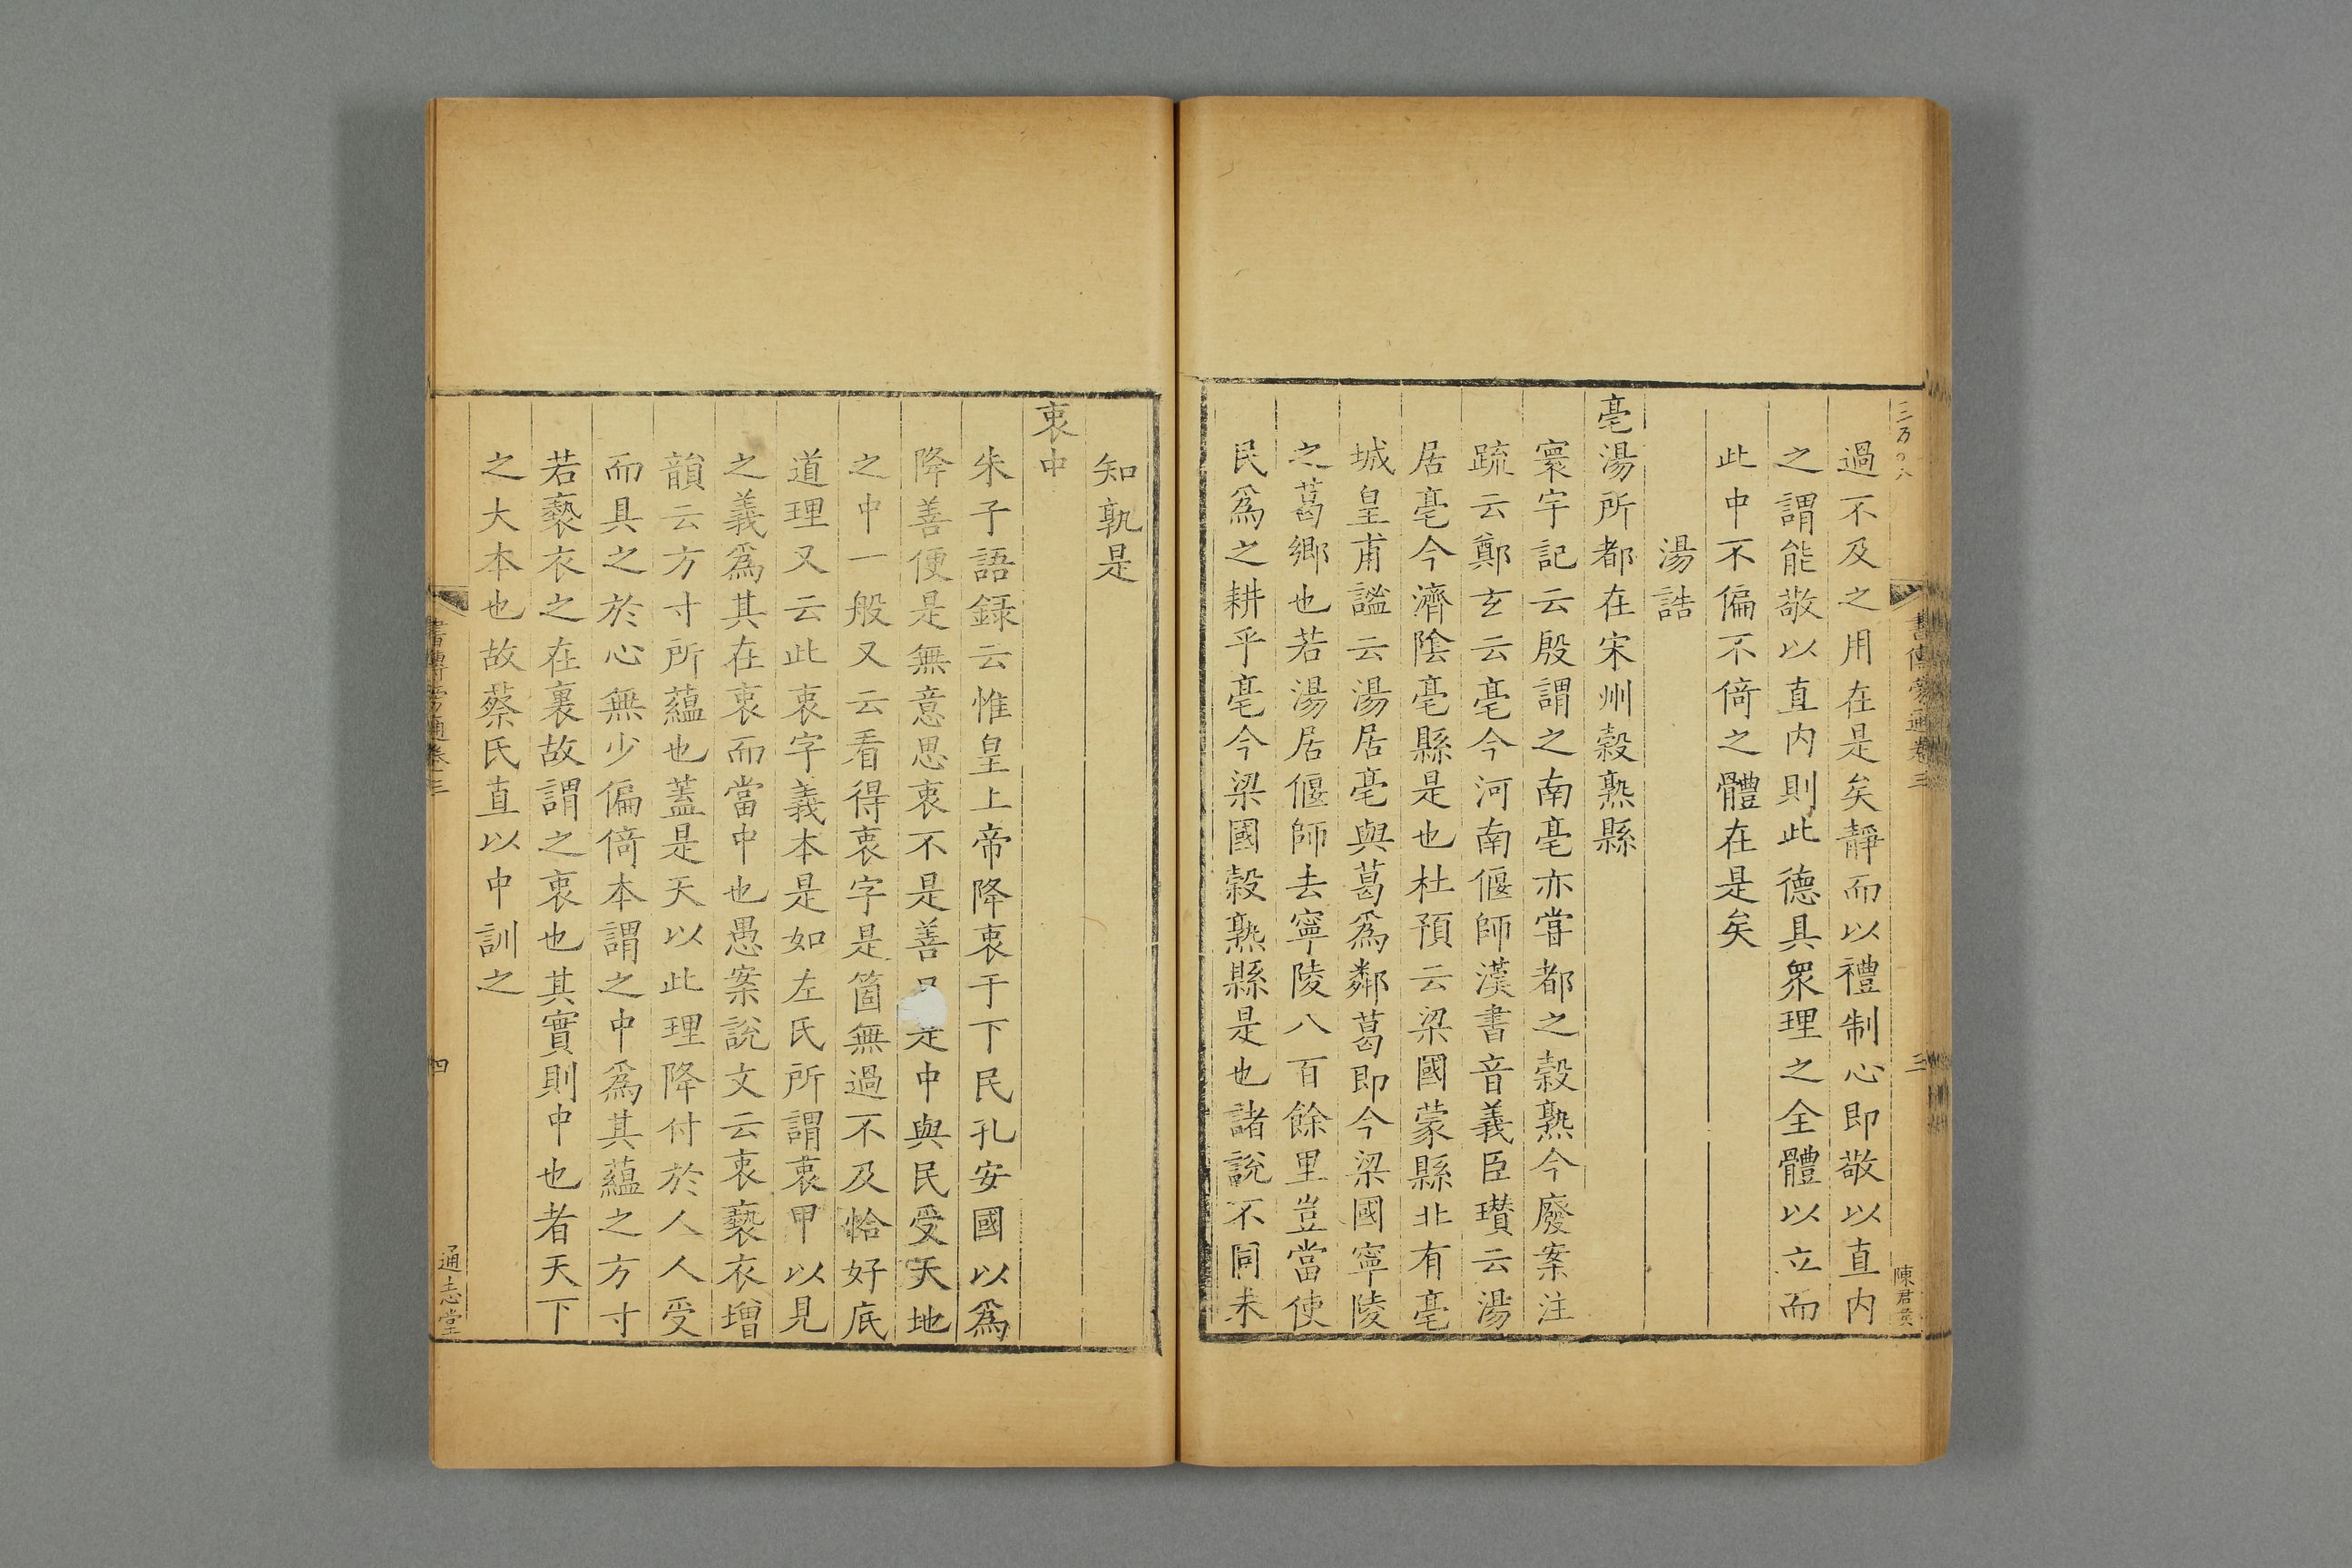 過不及之用在是矣靜而以禮制心即敬以直内
之謂能敬以直内則此德具衆理之全體以立而
此中不偏不倚之體在是矣
湯誥
亳湯所都在宋州穀熟縣
寰宇記云殷謂之南亳亦甞都之穀熟今廢案注
疏云鄭玄云亳今河南偃師漢書音義臣瓚云湯
居亳今濟陰亳縣是也杜預云梁國蒙縣北有亳
城皇甫謐云湯居亳與葛爲鄰葛即今梁國寧陵
之葛鄉也若湯居偃師去寧陵八百餘里豈當使
民爲之耕乎亳今梁國穀熟縣是也諸說不同未
書傳旁通卷三
三
知孰是
衷中
朱子語録云惟皇上帝降衷于下民孔安國以爲
降善便是無意思衷不是善是中與民受天地
之中一般又云看得衷字是箇無過不及恰好底
道理又云此衷字義本是如左氏所謂衷甲以見
之義爲其在衷而當中也愚案說文云衷褻衣增
韻云方寸所蘊也蓋是天以此理降付於人人受
而具之於心無少偏倚本謂之中爲其蘊之方寸
若褻衣之在裏故謂之衷也其實則中也者天下
之大本也故蔡氏直以中訓之
書傳旁通卷三
四
通志堂